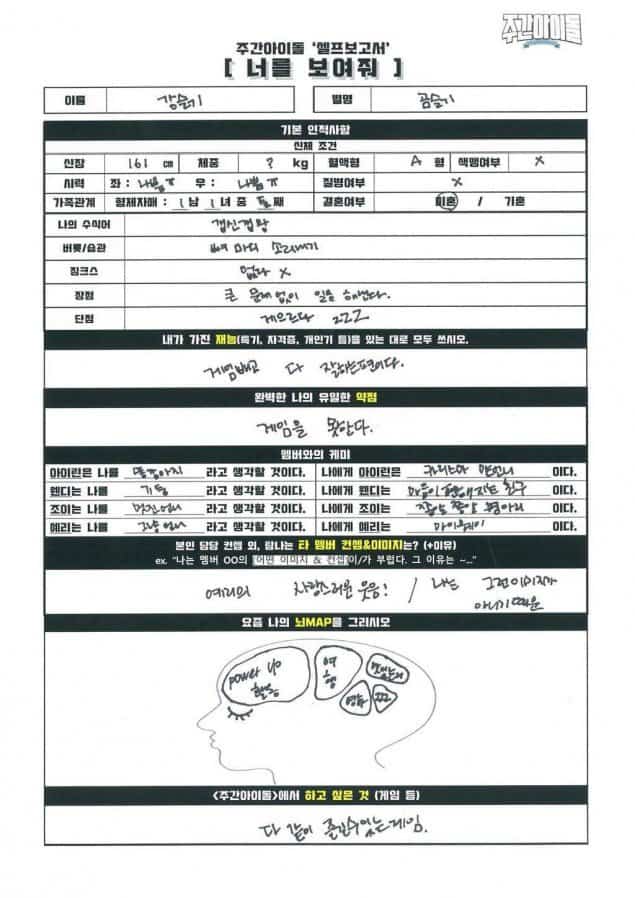 주간아이돌
주간아이돌 '셀프보고서'
[ 너를 보여줘 ]
이름 강슬기 별명 곰슬기
기본 인적사항
신체 조건
신장 161 cm 체중 ? kg 혈액형 A 형 색맹여부 X
시력 좌 : 나쁨ㅠ 우 : 나쁨ㅠ 질병여부 X
가족관계 형제자매 : 1 남 1 녀 중 둘 째 결혼여부 미혼 / 기혼
나의 수식어 갭신갭왕
버릇/습관 뼈 마디 소리내기
징크스 없다 X
장점 큰 문제 없이 일을 해낸다.
단점 게으르다 ㅋㅋㅋ
내가 가진 재능(특기, 자격증, 개인기 등)을 있는 대로 모두 쓰시오.
게임빼고 다 잘하는편이다.
완벽한 나의 유일한 약점
게임을 못한다.
멤버와의 케미
아이린은 나를 똥강아지 라고 생각할 것이다. 나에게 아이린은 카리스마 맏언니 이다.
웬디는 나를 라고 생각할 것이다. 나에게 웬디는 마음이 편해지는 친구 이다.
조이는 나를 멋진언니 라고 생각할 것이다. 나에게 조이는 병아리 이다.
예리는 나를 그냥 언니 라고 생각할 것이다. 나에게 예리는 마이웨이 이다.
본인 담당 컨셉 외, 탐나는 타 멤버 컨셉&이미지는? (+이유)
ex. "나는 멤버 OO의 [어떤 이미지 & 컨셉]이/가 부럽다. 그 이유는 ~..."
예리의 사랑스러운 웃음! / 나는 그런이미지가
아니기 때문
요즘 나의 뇌MAP을 그리시오
power up 여 맛있는거
활동 행 영화 ㅋㅋㅋ
<주간아이돌>에서 하고 싶은 것 (게임 등)
다 같이 즐길수있는게임.